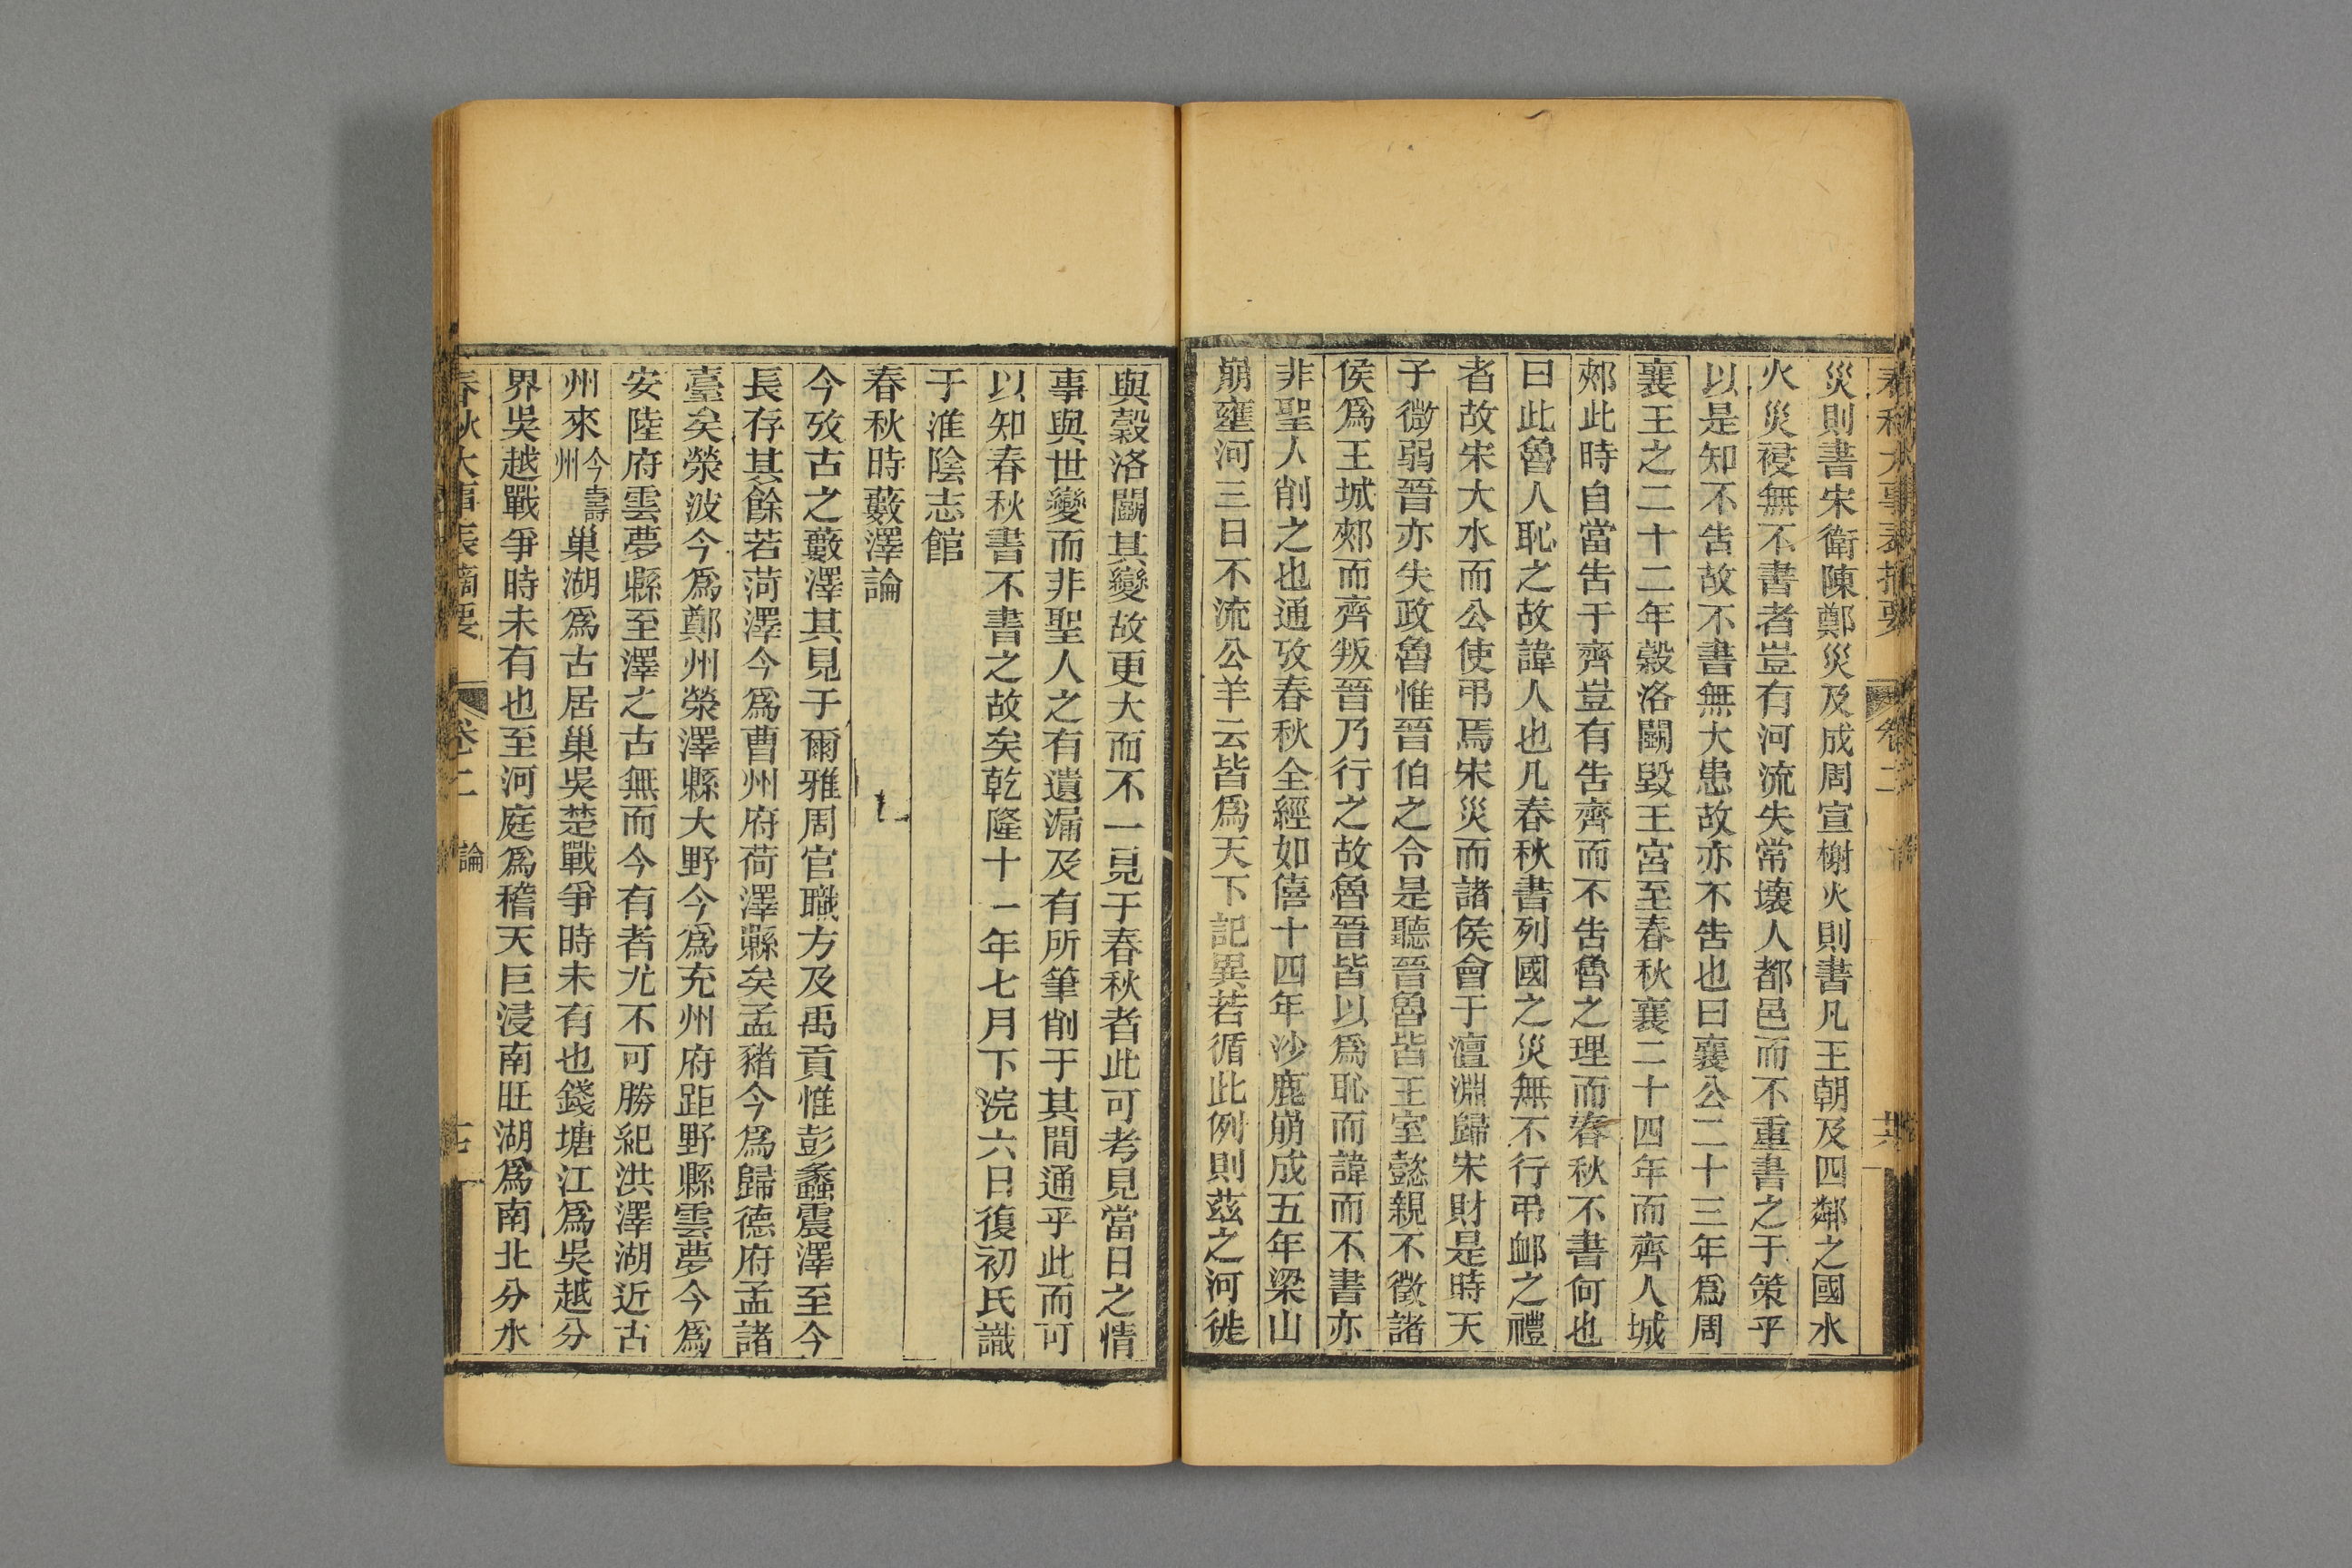 春秋大事表摘要 卷二
災則書宋衛陳鄭災及成周宣榭火則書凡王朝及四鄰之國水
火災祲無不書者豈有河流失常壞人都邑而不重書之于策乎
以是知不告故不書無大患故亦不告也曰襄公二十三年爲周
襄王之二十二年穀洛鬬毀王宮至春秋襄二十四年而齊人城
郟此時自當告于齊豈有告齊而不告魯之理而春秋不書何也
曰此魯人恥之故諱人也凡春秋書列國之災無不行弔䘏之禮
者故宋大水而公使弔焉宋災而諸侯會于澶淵歸宋財是時天
子微弱晉亦失政魯惟晉伯之令是聽晉魯皆王室懿親不徵諸
侯爲王城郟而齊叛晉乃行之故魯晉皆以爲恥而諱而不書亦
非聖人削之也通攷春秋全經如僖十四年沙鹿崩成五年梁山
崩壅河三日不流公羊云皆爲天下記異若循此例則茲之河徙
與穀洛鬬其變故更大而不一見于春秋者此可考見當日之情
事與世變而非聖人之有遺漏及有所筆削于其間通乎此而可
以知春秋書不書之故矣乾隆十一年七月下浣六日復初氏識
于淮陰志館
春秋時藪澤論
今攷古之藪澤其見于爾雅周官職方及禹貢惟彭蠡震澤至今
長存其餘若菏澤今爲曹州府荷澤縣矣孟豬今爲歸德府孟諸
臺矣滎波今爲鄭州滎澤縣大野今爲充州府距野縣雲夢今爲
安陸府雲夢縣至澤之古無而今有者尤不可勝紀洪澤湖近古
州來今壽州巢湖爲古居巢吳楚戰爭時未有也錢塘江爲吳越分
界吳越戰爭時未有也至河庭爲稽天巨浸南旺湖爲南北分水
春秋大事表摘要 卷二 論